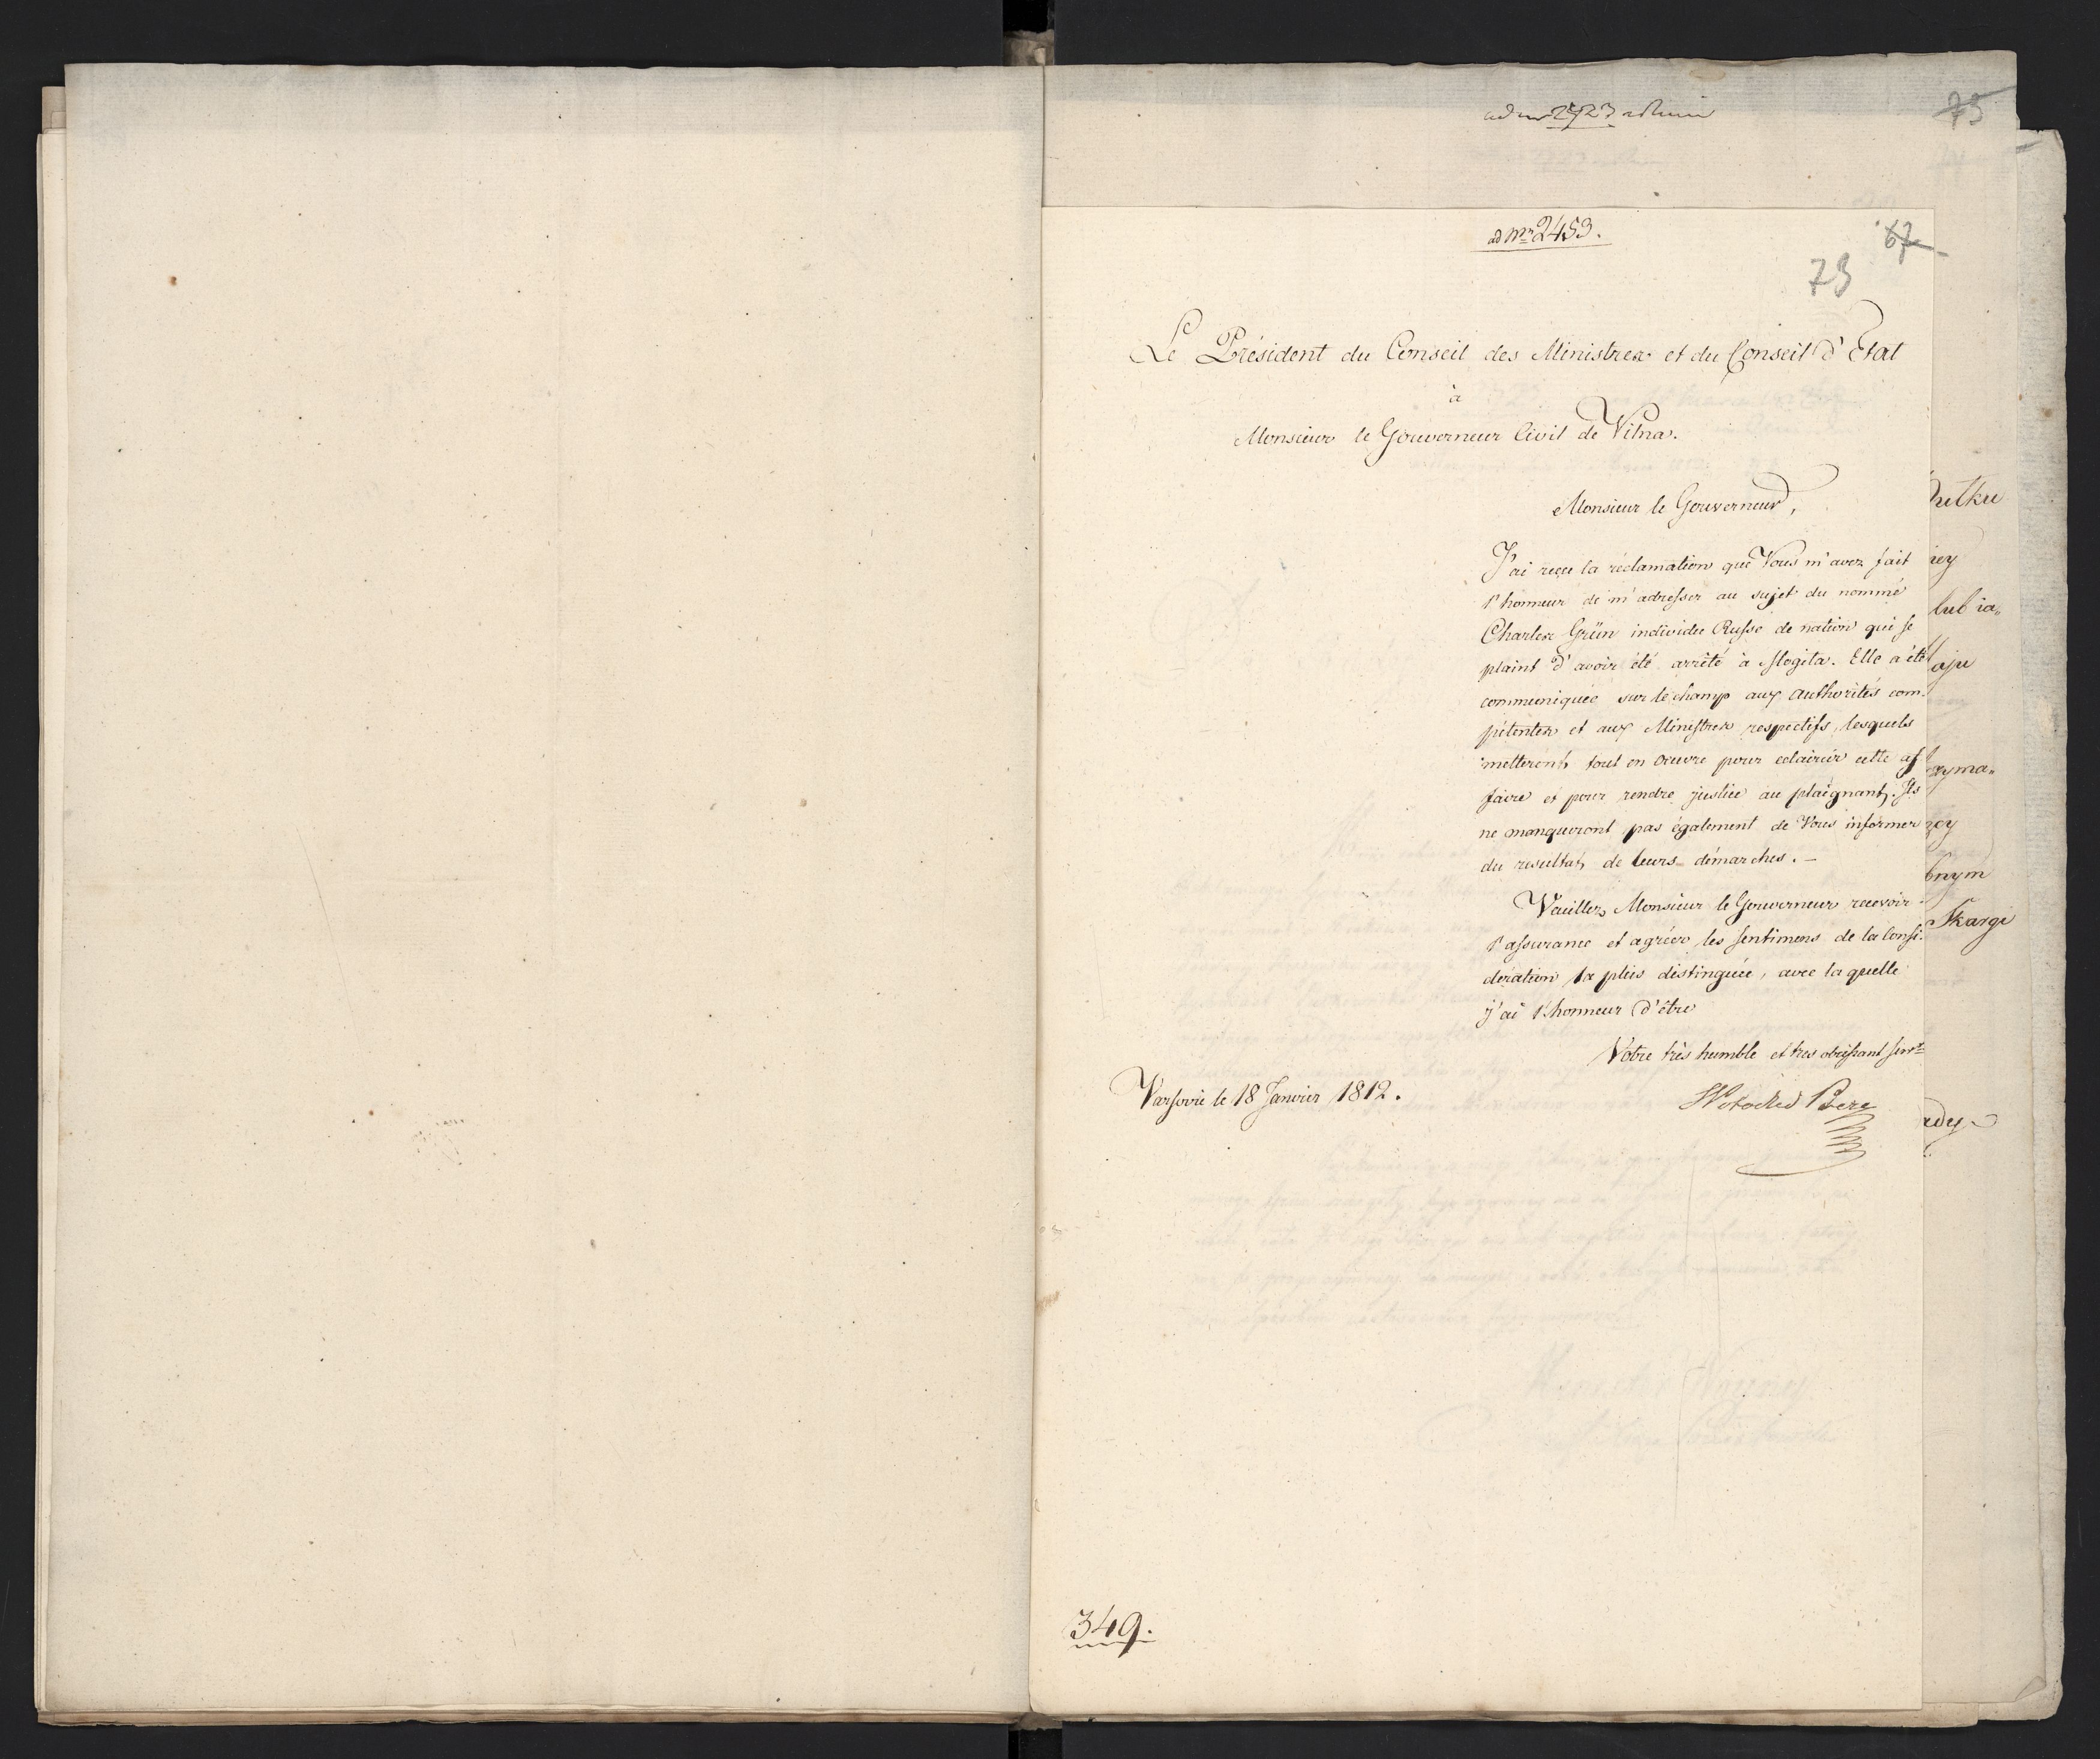 75
ad Nr 2453.
67
73
Le Président du Conseil des Ministres et du Conseil d'Etat
à
Monsieur le Gouverneur Civil de Vilna.
Monsieur le Gouverneur,
J'ai reçu la réclamation que Vous m'avez fait
l'honneur de m'adresser au sujet du nommé
Charles Grün individu Russe de nation qui se
plaint d'avoir été arrêté à Mogita. Elle a été
communiquée sur le champ aux Authorités com-
pétentes et aux Ministres respectifs, lesquels
metteront tout en œuvre pour eclaircir cette af-
faire et pour rendre justice au plaignant. Ils
ne manqueront pas également de Vous informer
du resultat de leurs démarches. —
Veuillez Monsieur le Gouverneur recevoir
l'assurance et agréer les sentimens de la Consi-
deration la plus distinguée, avec la quelle
j'ai l'honneur d'être
Votre très humble et tres obeissant servt
Varsovie le 18 Janvier 1812.
349.
hutku
iey
lub ia„
aju
ayma„
zey
bnym
Skargi
rdy